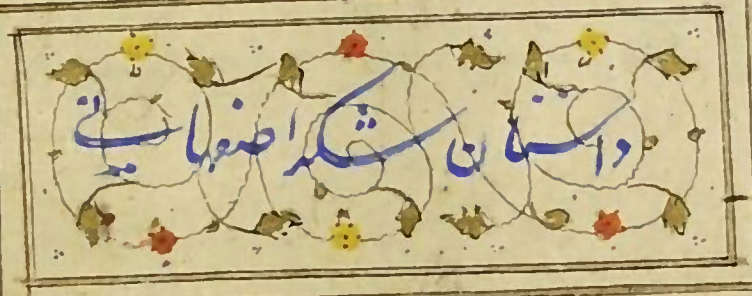 داستان شکر اصفهانی